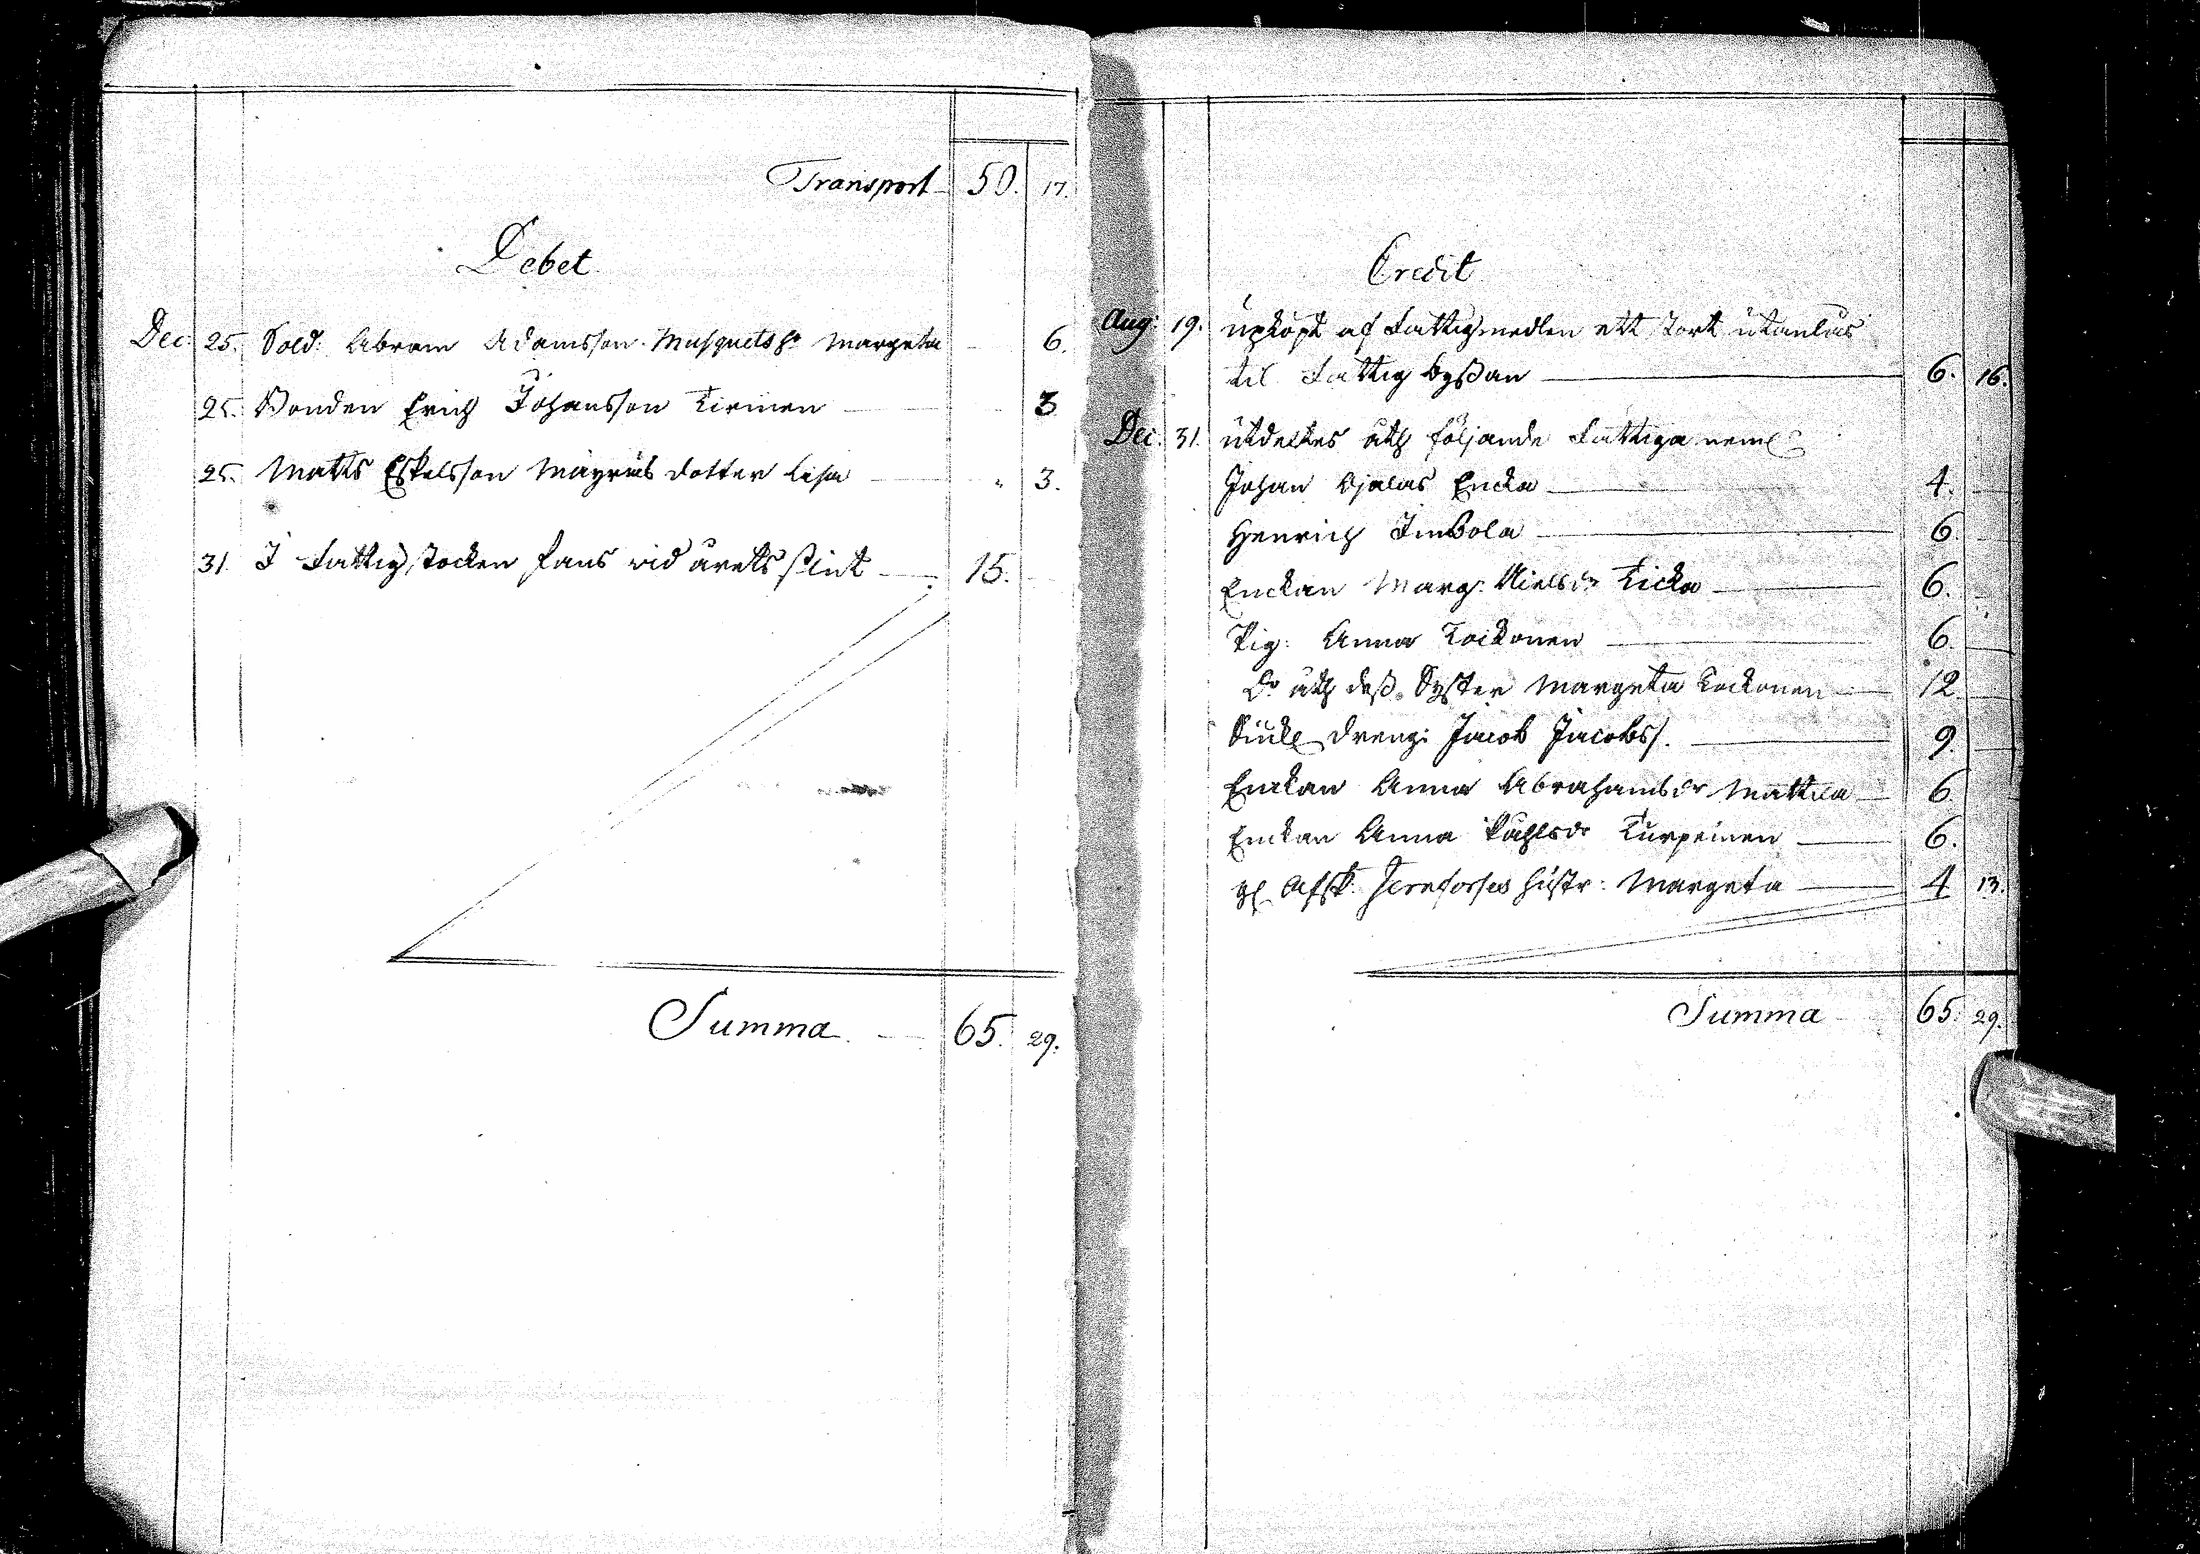 Transport 50. 17.
Debet
Dec. 25. Sold: Abram Adamsson Musquets h:o Margeta 6.
25. Bonden Erich Johansson Kirinen 3
25. Matts Eskelsson Mäyräs dotter Lisa " 3.
31. I Fattig stocken fans vid årets slut 15.
Summa 65. 29.
Credit
Aug: 19. upköpt af Fattigmedlen ett stort utanlås
til Fattig byssan 6. 16.
Dec. 31. utdeltes åth följande Fattiga neml
Johan Ojalas Encka 4.
Henrich Imbola 6.
Enckan Marg: Nielsdr Kicka 6.
Pig: Anna Koickonen 6.
Do åth dess Syster Margeta Kockonen 12.
Siukl drengi Jacob Jacobss. 9.
Enckan Anna Abrahamsdr Mattila 6.
Enckan Anna Påhlsdr Turpeinen 6.
gl. Afsk. hustr: Margeta 4 13.
Summa 65. 29.